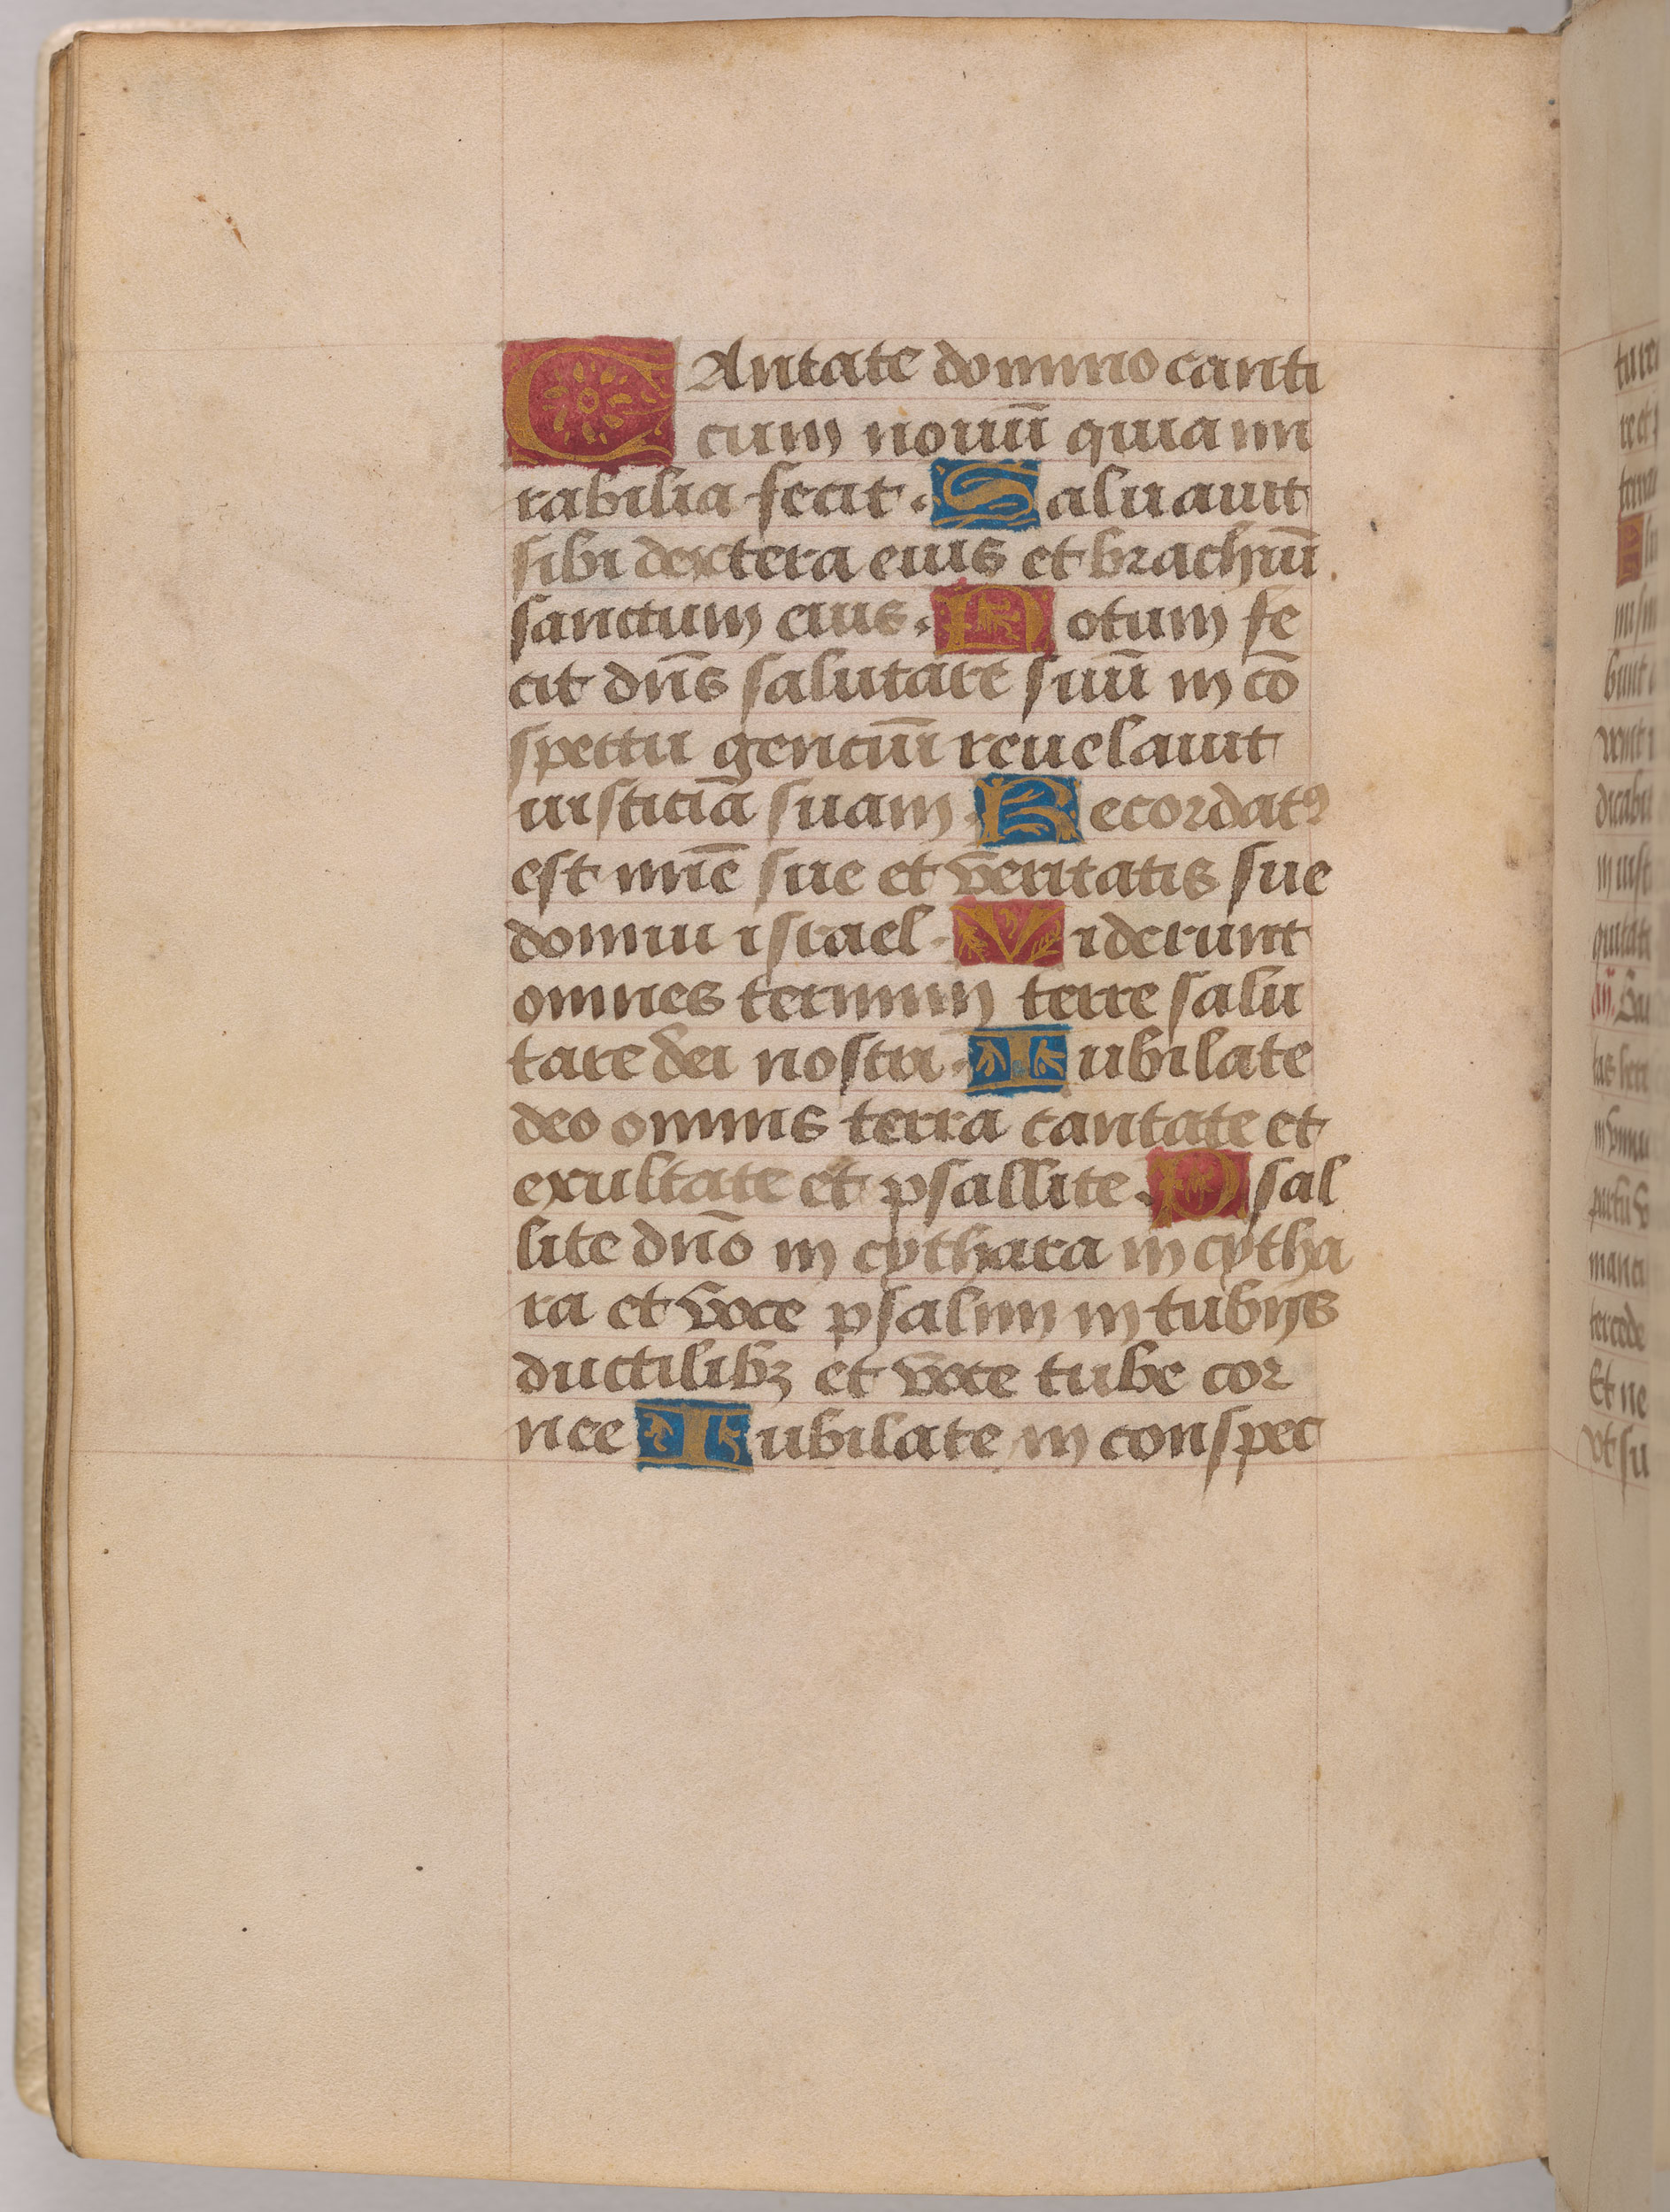 CAntate domino canti
cum nouū quia mi
rabilia fecit. Saluauit
sibi dextera eius et brachiū
sanctum eius. Notum fe
cit dn̄s salutare suū in cō
spectu genciū reuelauit
iusticiā suam. Recordatꝰ
est mīe sue et veritatis sue
domui israel. Viderunt
omnes termini terre salu
tare dei nostri. Iubilate
deo omnis terra cantate et
exultate et psallite. Psal
lite dn̄o in cythara in cytha
ra et voce psalmi in tubijs
ductilibꝫ et voce tube cor
nee Iubilate in conspec